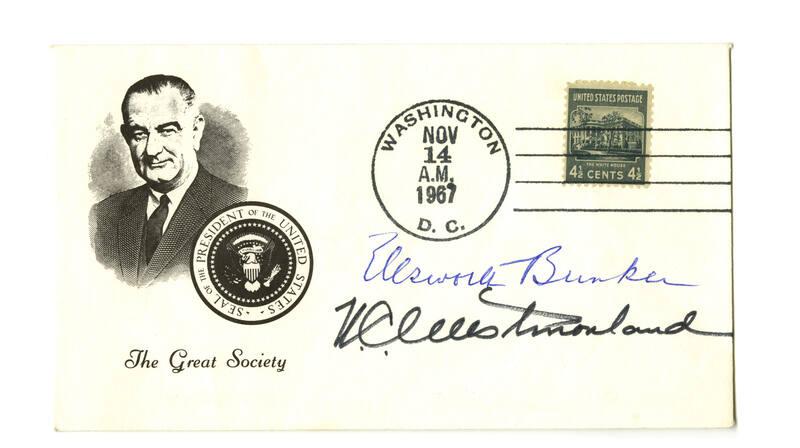 WASHINGTON
NOV
14
A.M.
1967
D. C.
UNITED STATES POSTAGE
THE WHITE HOUSE
4½ CENTS 4½
SEAL OF THE PRESIDENT OF THE UNITED STATES
Ellsworth Bunker
W.C. Westmoreland
The Great Society